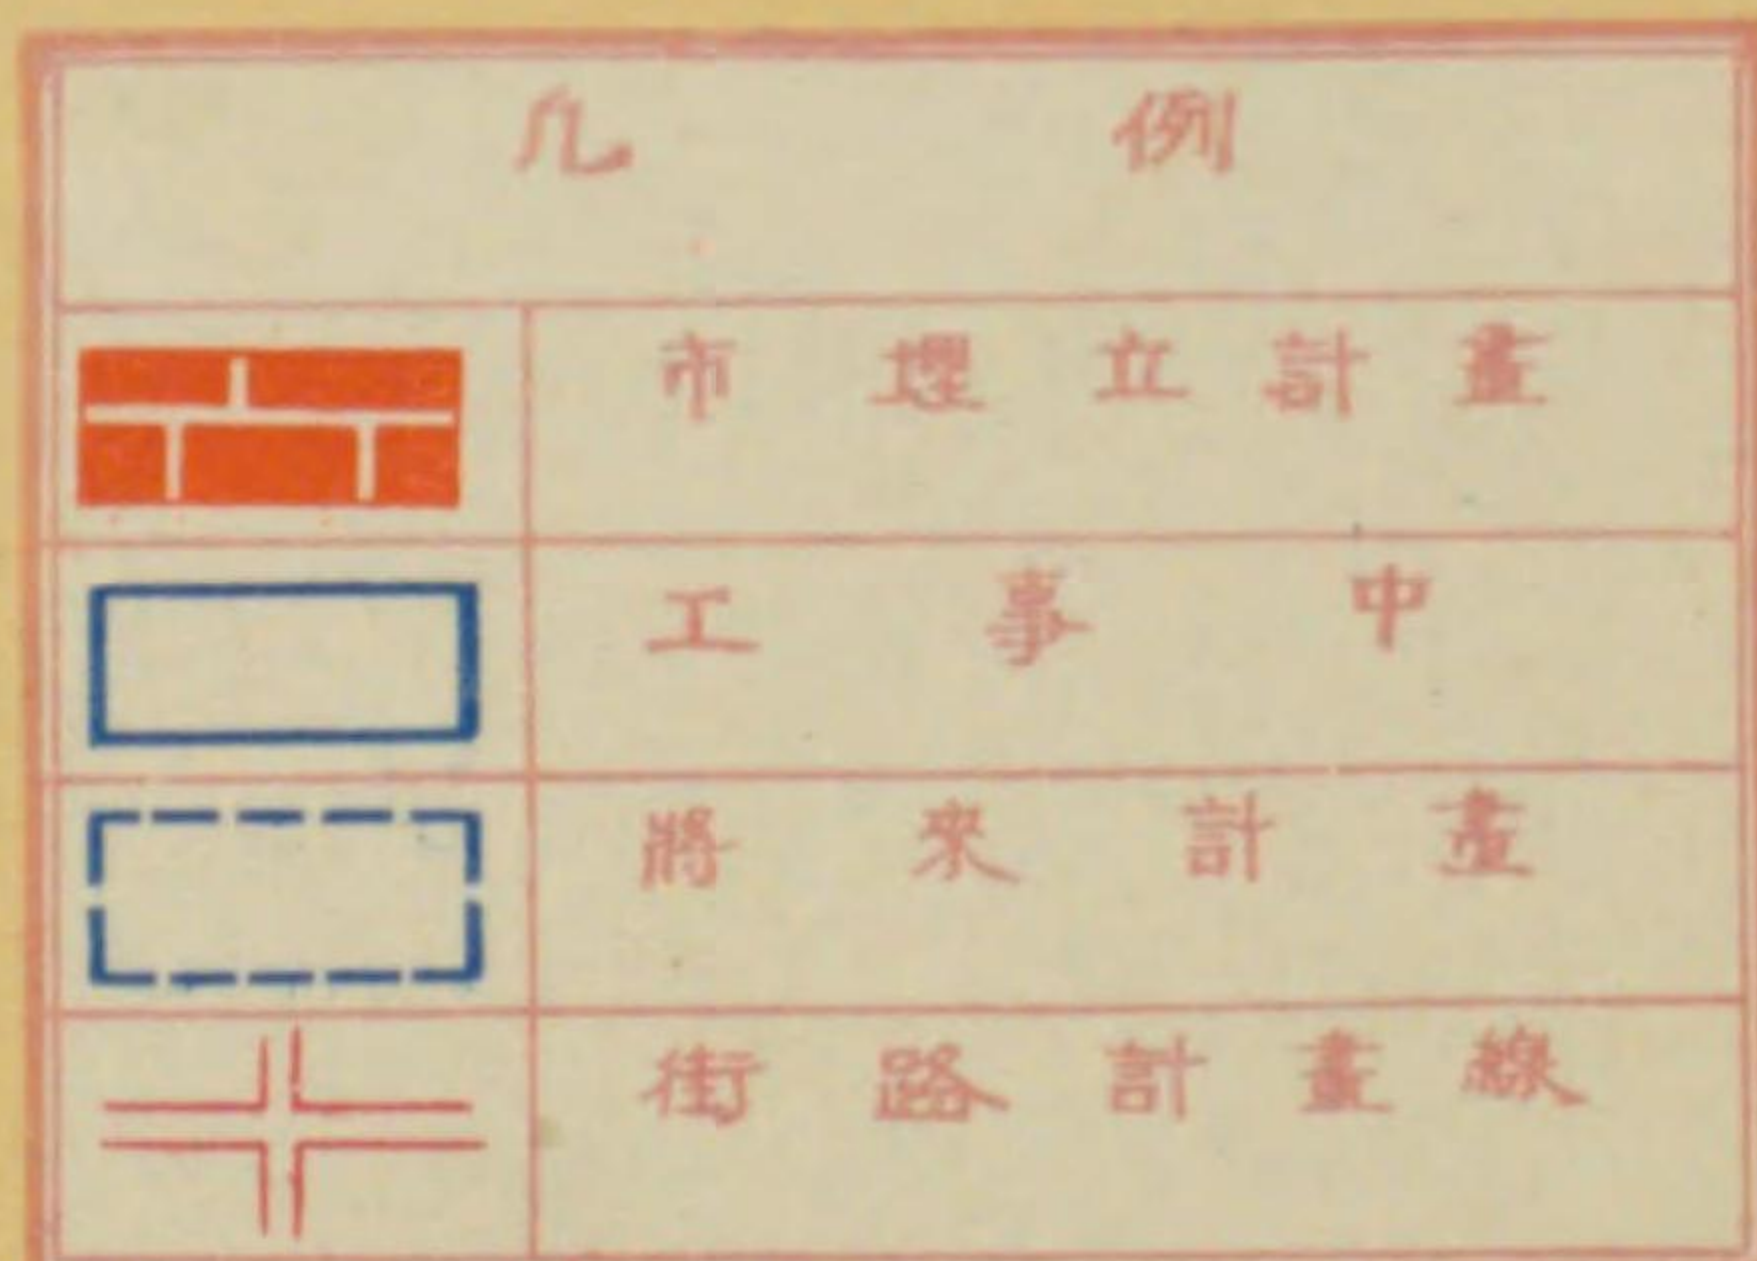 凡例
市埋立計畫
工事中
將來計畫
街路計畫線